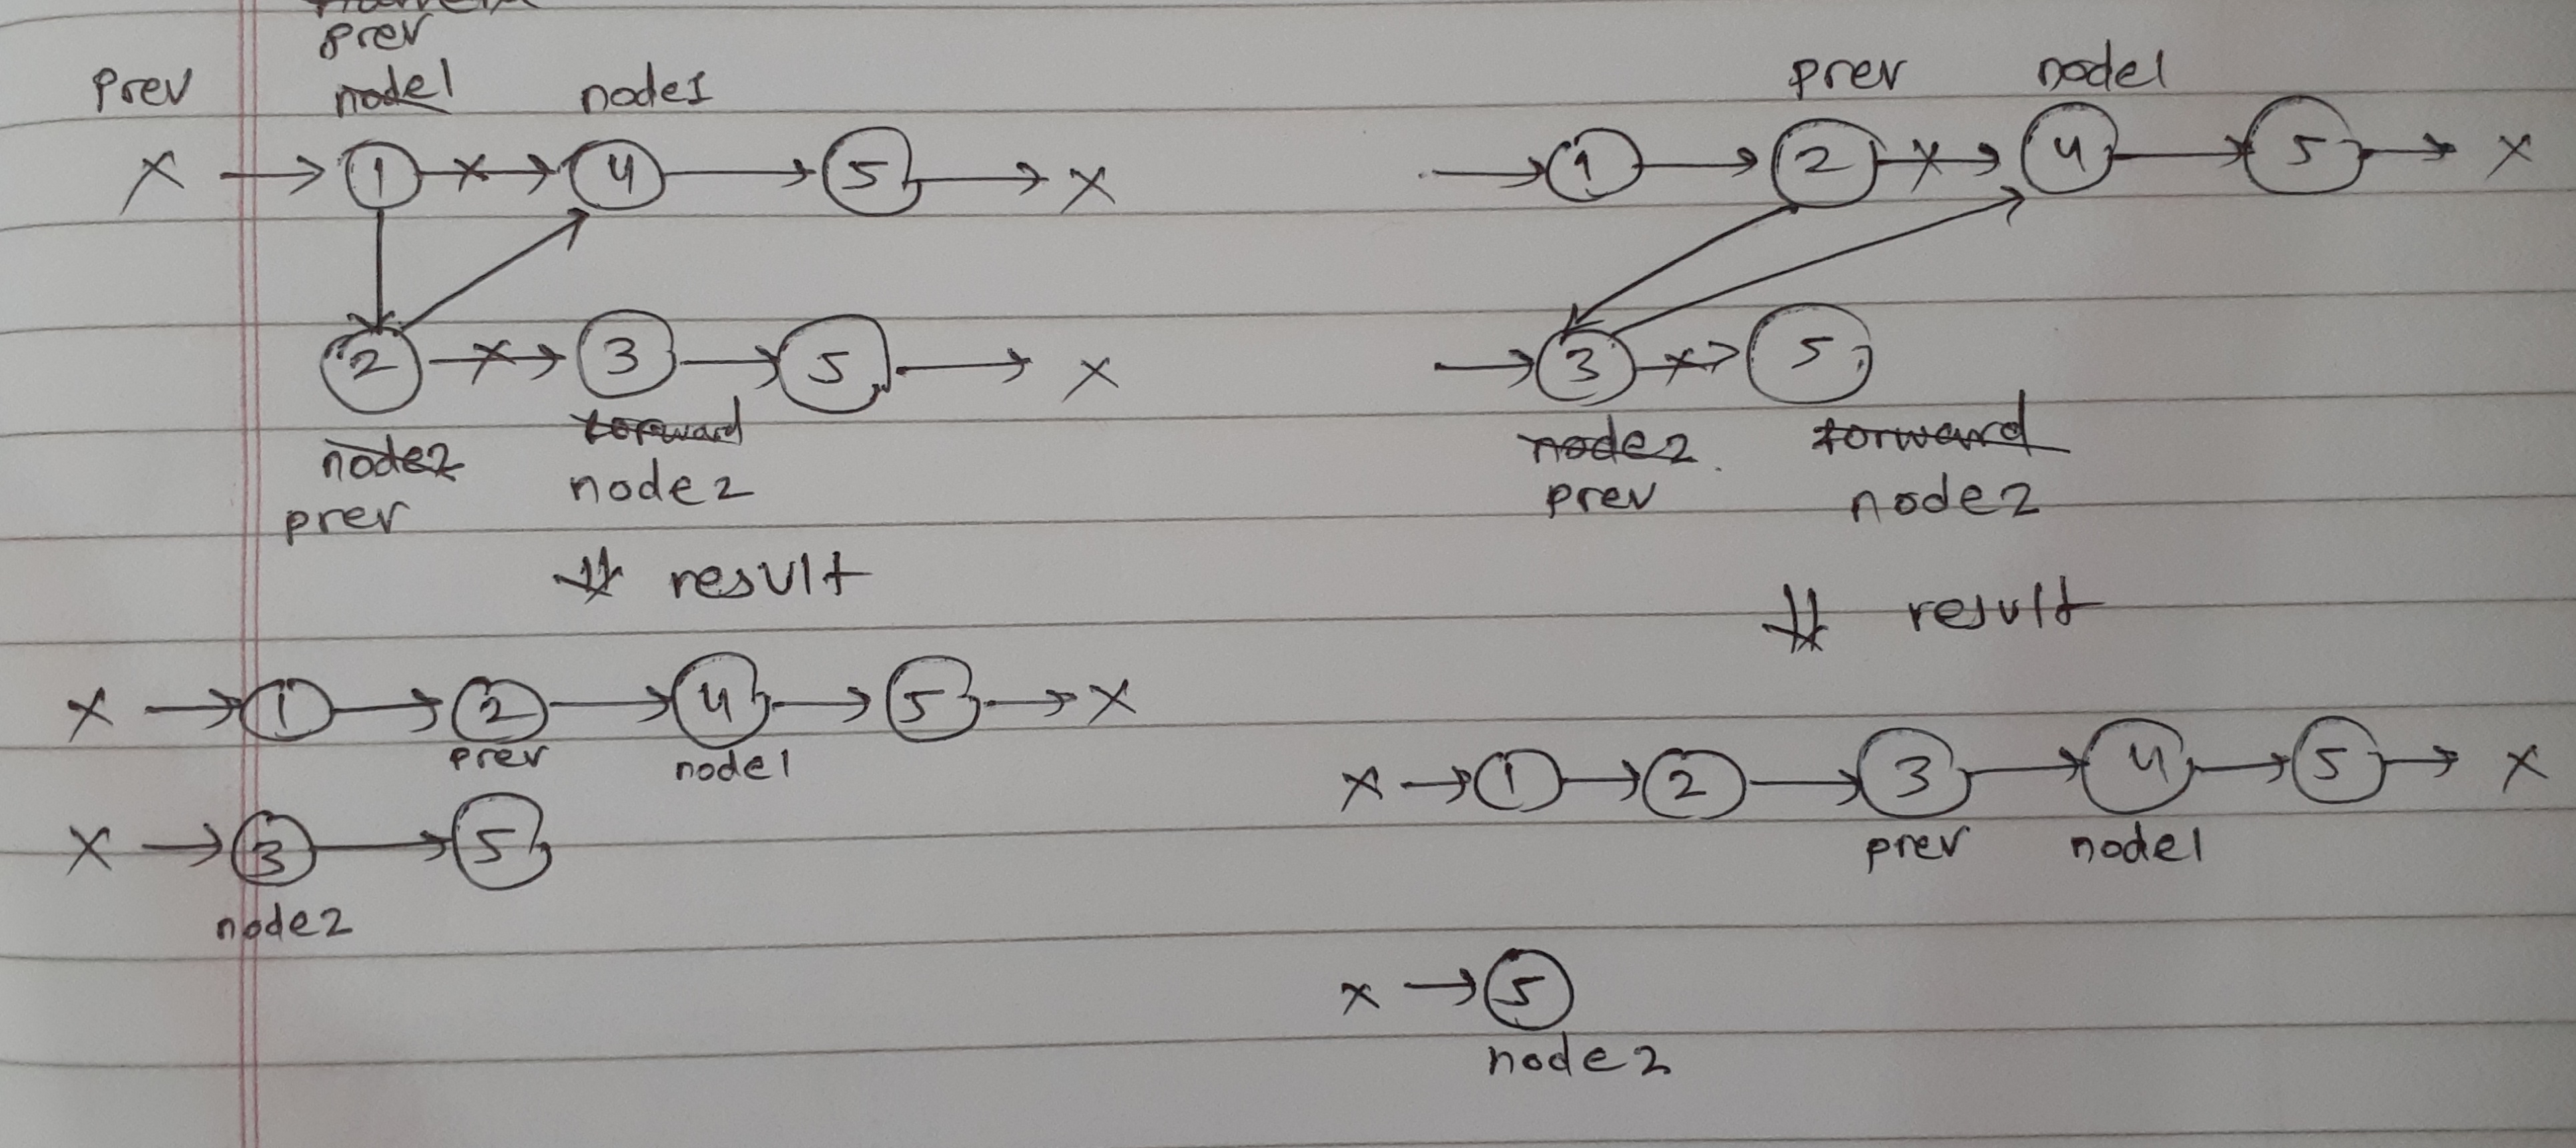 prev
Prev node1 node1
X → 1 → 4 → 5 → X
2 → 3 → 5 → X
node2 forward
prev node2
# result
X → 1 → 2 → 4 → 5 → X
prev node1
X → 3 → 5
node2
prev node1
→ 1 → 2 → 4 → 5 → X
→ 3 → 5
node2 forward
prev node2
# result
X → 1 → 2 → 3 → 4 → 5 → X
prev node1
X → 5
node2